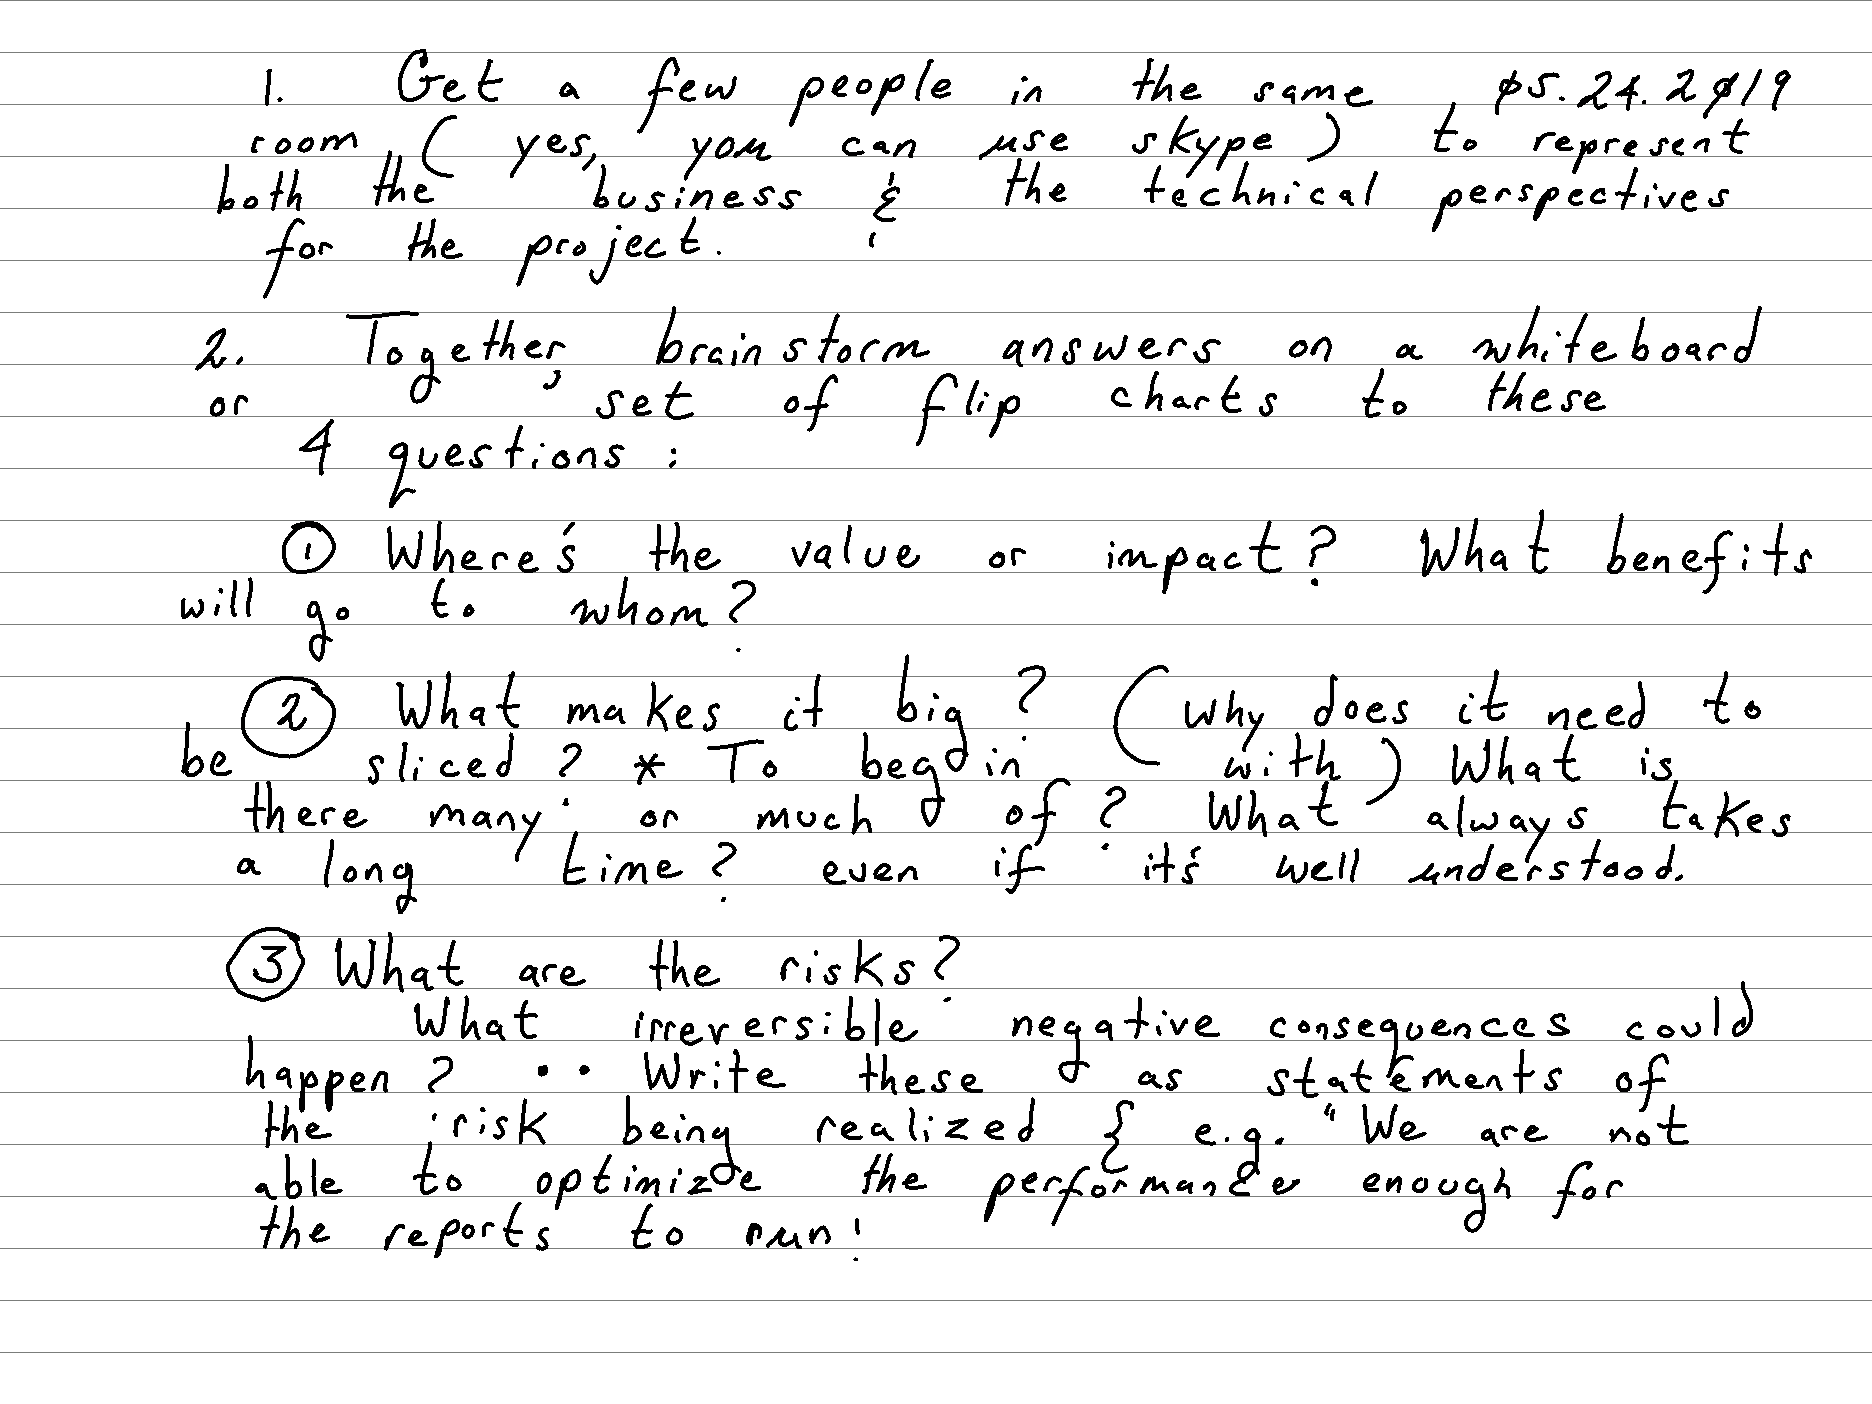 1. Get a few people in the same , ø5.24.2ø19
room (yes, you can use skype) to represent
both the business & the technical perspectives
for the project.
2. Together, brainstorm answers on a whiteboard
or set of flip charts to these
4 questions:
① Where's the value or impact? What benefits
will go to whom?
② What makes it big? (why does it need to
be sliced? * To begin with) What is
there many or much of? What always takes
a long time? even if it's well understood.
③ What are the risks?
What irreversible negative consequences could
happen? •• Write these as statements of
the risk being realized { e.g. "We are not
able to optimize the performance enough for
the reports to run!